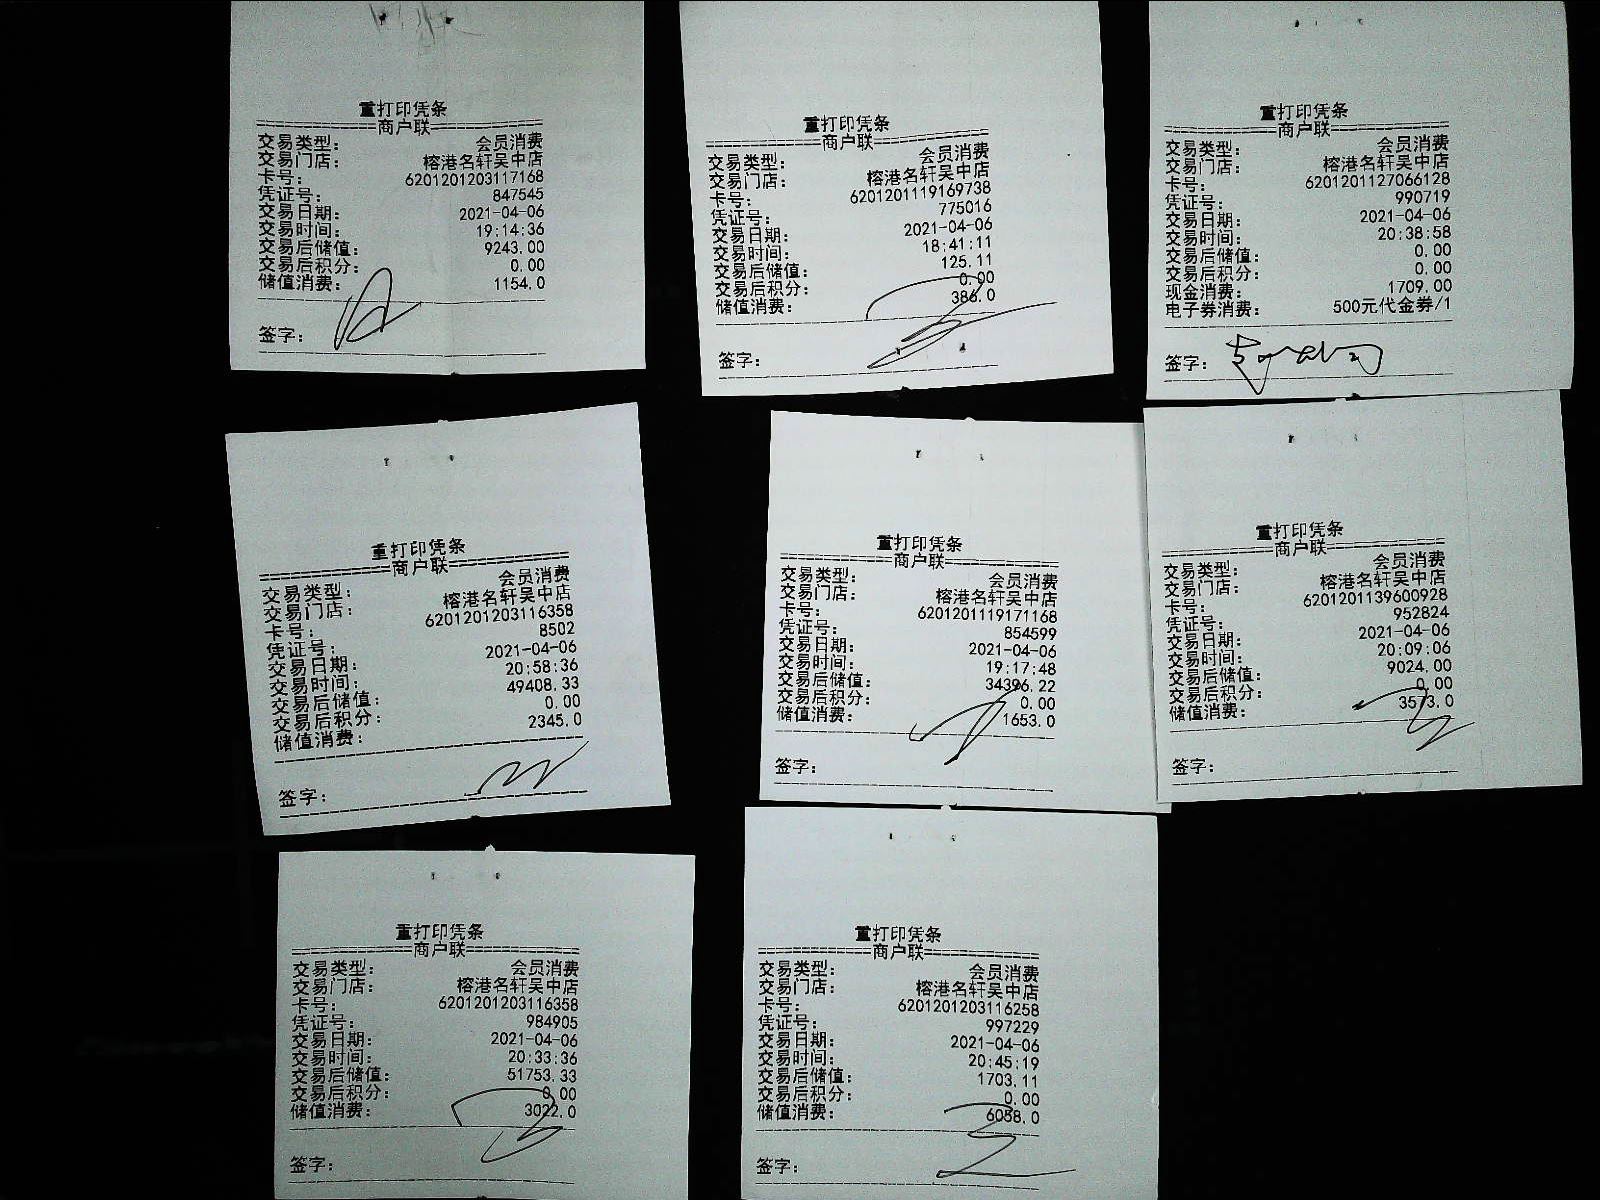 重打印凭条
==========商户联==========
交易类型: 会员消费
交易门店: 榕港名轩吴中店
卡号: 6201201203117168
凭证号: 847545
交易日期: 2021-04-06
交易时间: 19:14:36
交易后储值: 9243.00
交易后积分: 0.00
储值消费: 1154.0
签字:
重打印凭条
==========商户联==========
交易类型: 会员消费
交易门店: 榕港名轩吴中店
卡号: 6201201119169738
凭证号: 775016
交易日期: 2021-04-06
交易时间: 18:41:11
交易后储值: 125.11
交易后积分: 0.00
储值消费: 386.0
签字:
重打印凭条
==========商户联==========
交易类型: 会员消费
交易门店: 榕港名轩吴中店
卡号: 6201201127066128
凭证号: 990719
交易日期: 2021-04-06
交易时间: 20:38:58
交易后储值: 0.00
交易后积分: 0.00
现金消费: 1709.00
电子券消费: 500元代金券/1
签字:
重打印凭条
==========商户联==========
交易类型: 会员消费
交易门店: 榕港名轩吴中店
卡号: 6201201203116358
凭证号: 8502
交易日期: 2021-04-06
交易时间: 20:58:36
交易后储值: 49408.33
交易后积分: 0.00
储值消费: 2345.0
签字:
重打印凭条
==========商户联==========
交易类型: 会员消费
交易门店: 榕港名轩吴中店
卡号: 6201201119171168
凭证号: 854599
交易日期: 2021-04-06
交易时间: 19:17:48
交易后储值: 34396.22
交易后积分: 0.00
储值消费: 1653.0
签字:
重打印凭条
==========商户联==========
交易类型: 会员消费
交易门店: 榕港名轩吴中店
卡号: 6201201139600928
凭证号: 952824
交易日期: 2021-04-06
交易时间: 20:09:06
交易后储值: 9024.00
交易后积分: 0.00
储值消费: 3573.0
签字:
重打印凭条
==========商户联==========
交易类型: 会员消费
交易门店: 榕港名轩吴中店
卡号: 6201201203116358
凭证号: 984905
交易日期: 2021-04-06
交易时间: 20:33:36
交易后储值: 51753.33
交易后积分: 0.00
储值消费: 3022.0
签字:
重打印凭条
==========商户联==========
交易类型: 会员消费
交易门店: 榕港名轩吴中店
卡号: 6201201203116258
凭证号: 997229
交易日期: 2021-04-06
交易时间: 20:45:19
交易后储值: 1703.11
交易后积分: 0.00
储值消费: 6058.0
签字: